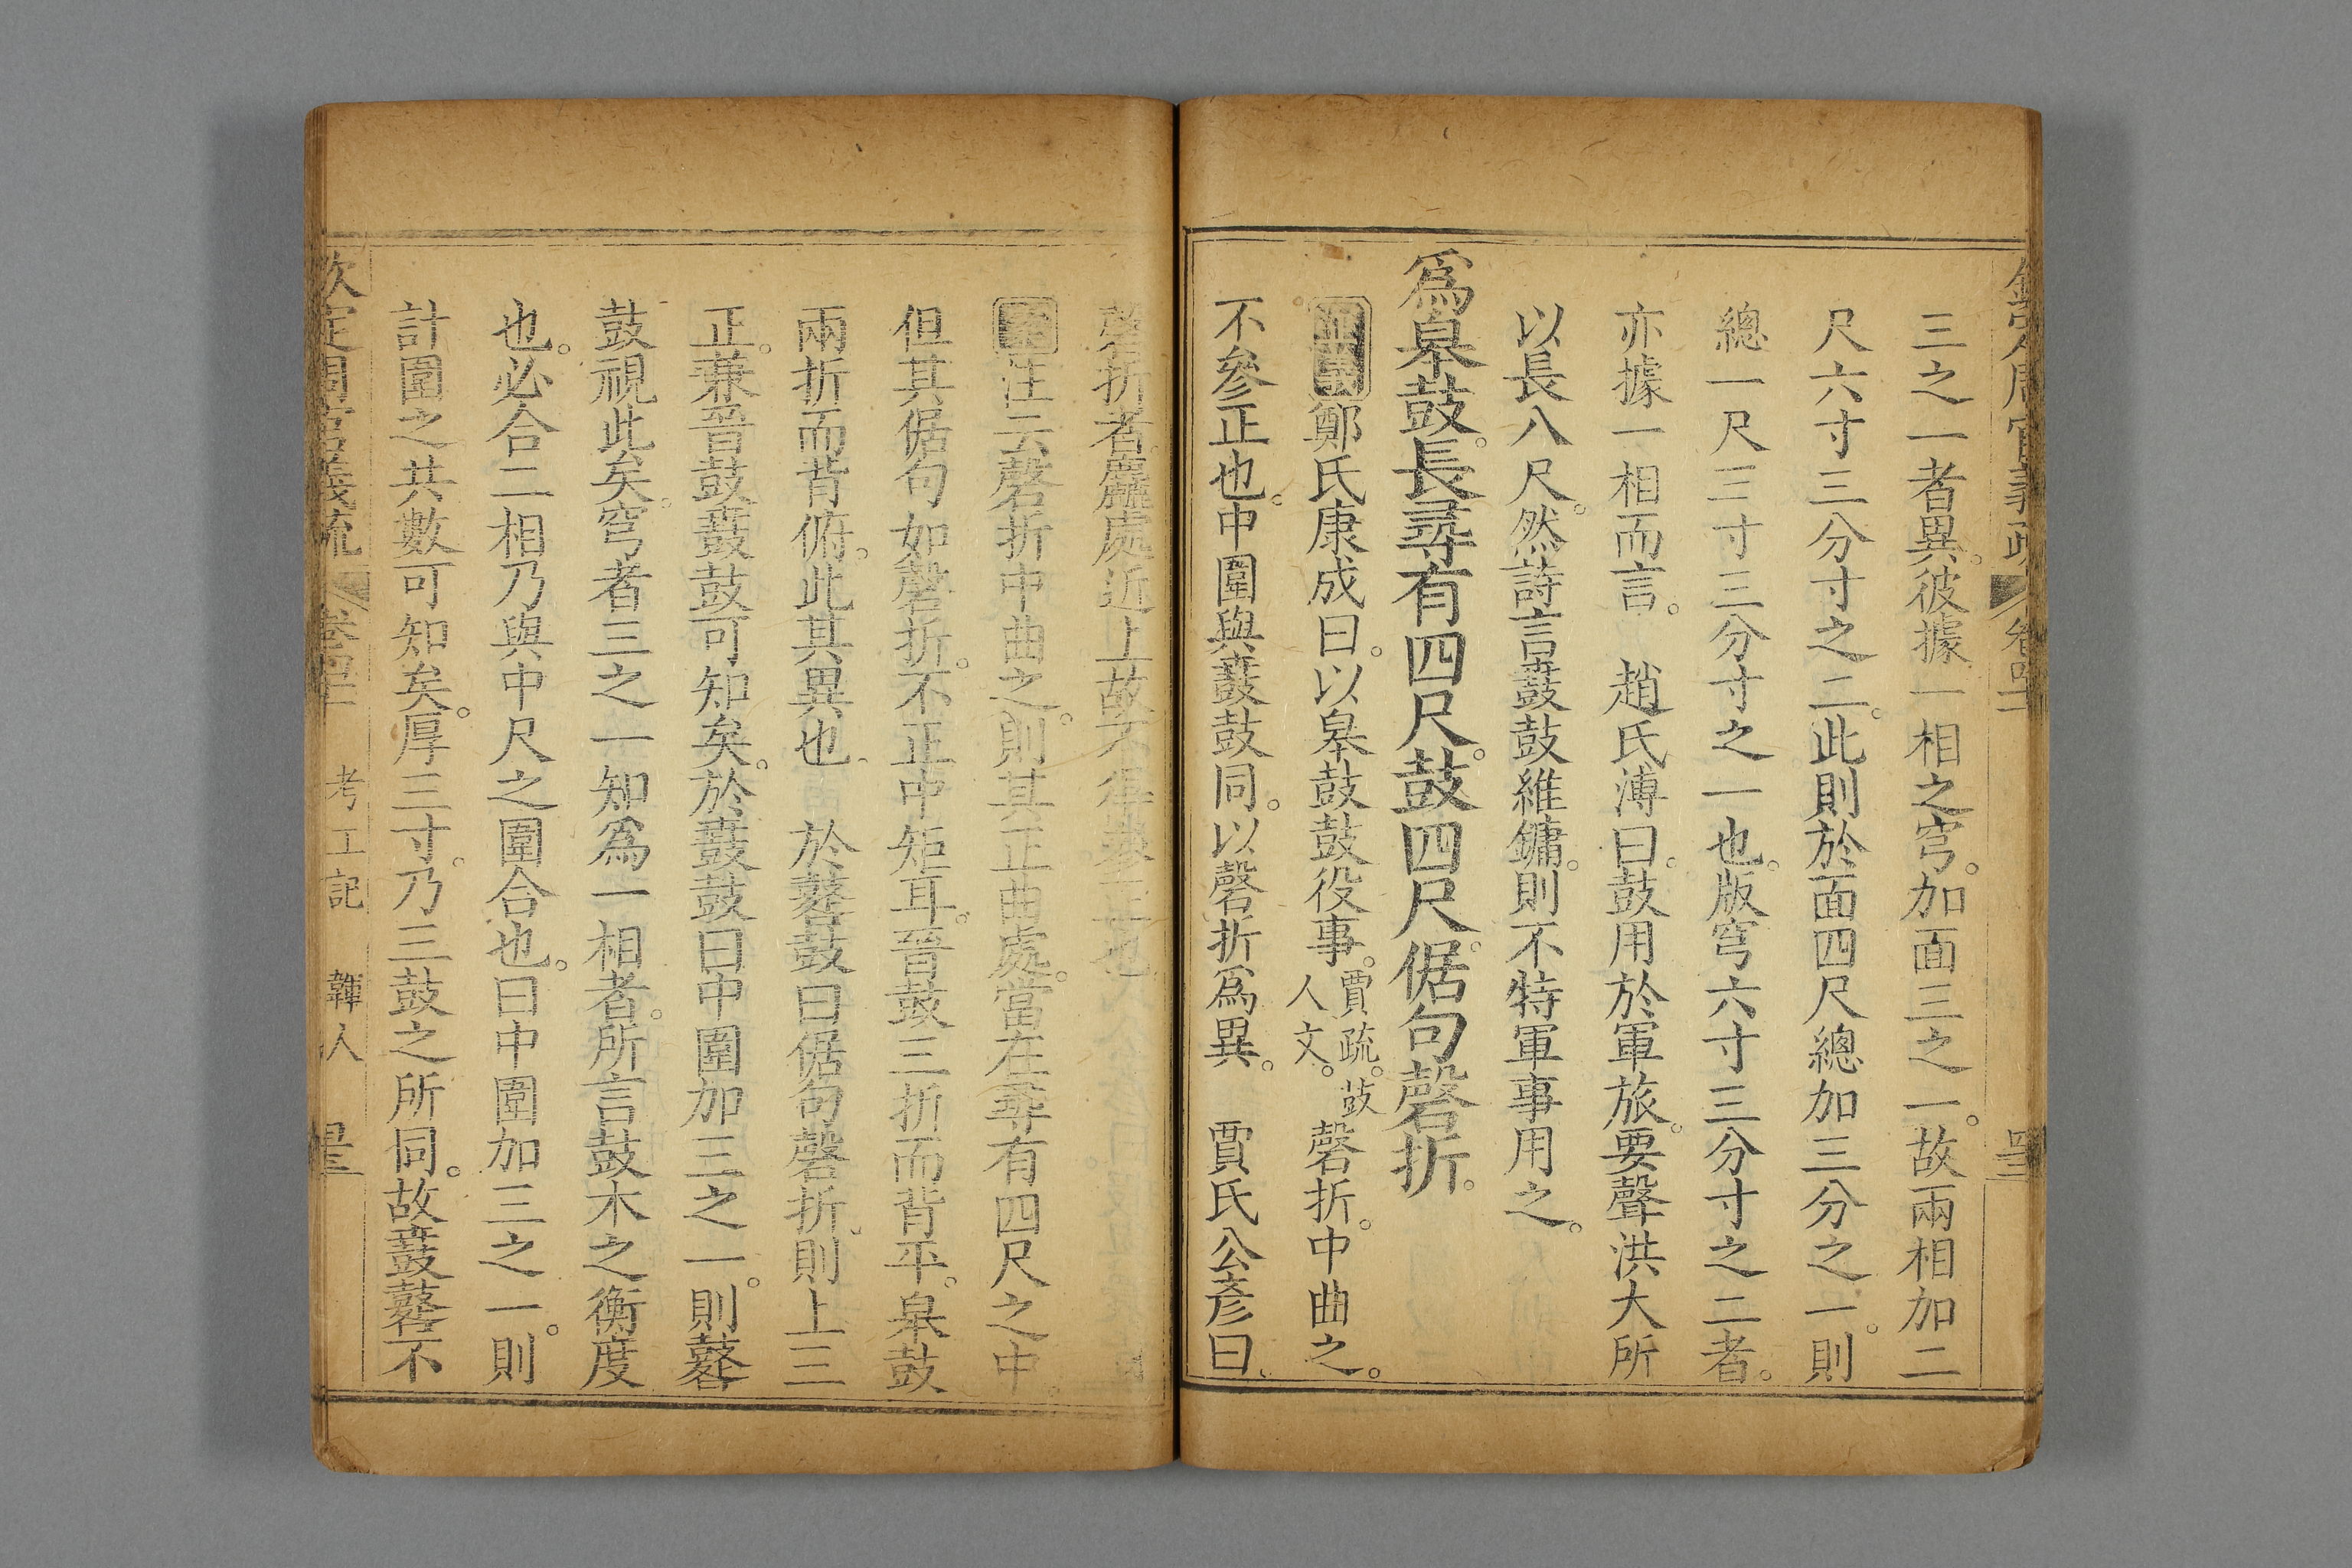 三之一者異。彼據一相之穹。加面三之一。故兩相加二
尺六寸三分寸之二。此則於面四尺總加三分之一。則
總一尺三寸三分寸之一也。版穹六寸三分寸之二者。
亦據一相而言。 趙氏溥曰。鼓用於軍旅。要聲洪大所
以長八尺。然詩言鼖鼓維鏞。則不特軍事用之。
爲皋鼓。長尋有四尺。鼓四尺。倨句磬折。
鄭氏康成曰。以皋鼓鼓役事。賈疏。鼓人文。 磬折。中曲之。
不參正也。中圍與鼖鼓同。以磬折爲異。 賈氏公彥曰。
磬折者。鼖處近上。故不得參正也
注云磬折中曲之。則其正曲處。當在尋有四尺之中。
但其倨句如磬折。不正中矩耳。晉鼓三折而背平。皋鼓
兩折而背俯。此其異也。 於鼛鼓曰倨句磬折。則上三
正。兼晉鼓鼖鼓可知矣。於鼖鼓曰中圍加三之一。則鼛
鼓視此矣。穹者三之一。知爲一相者。所言鼓木之衡度
也。必合二相乃與中尺之圍合也。曰中圍加三之一。則
計圍之共數可知矣。厚三寸。乃三鼓之所同。故鼖鼛不
欽定周官義疏 卷四十二 考工記 韗人